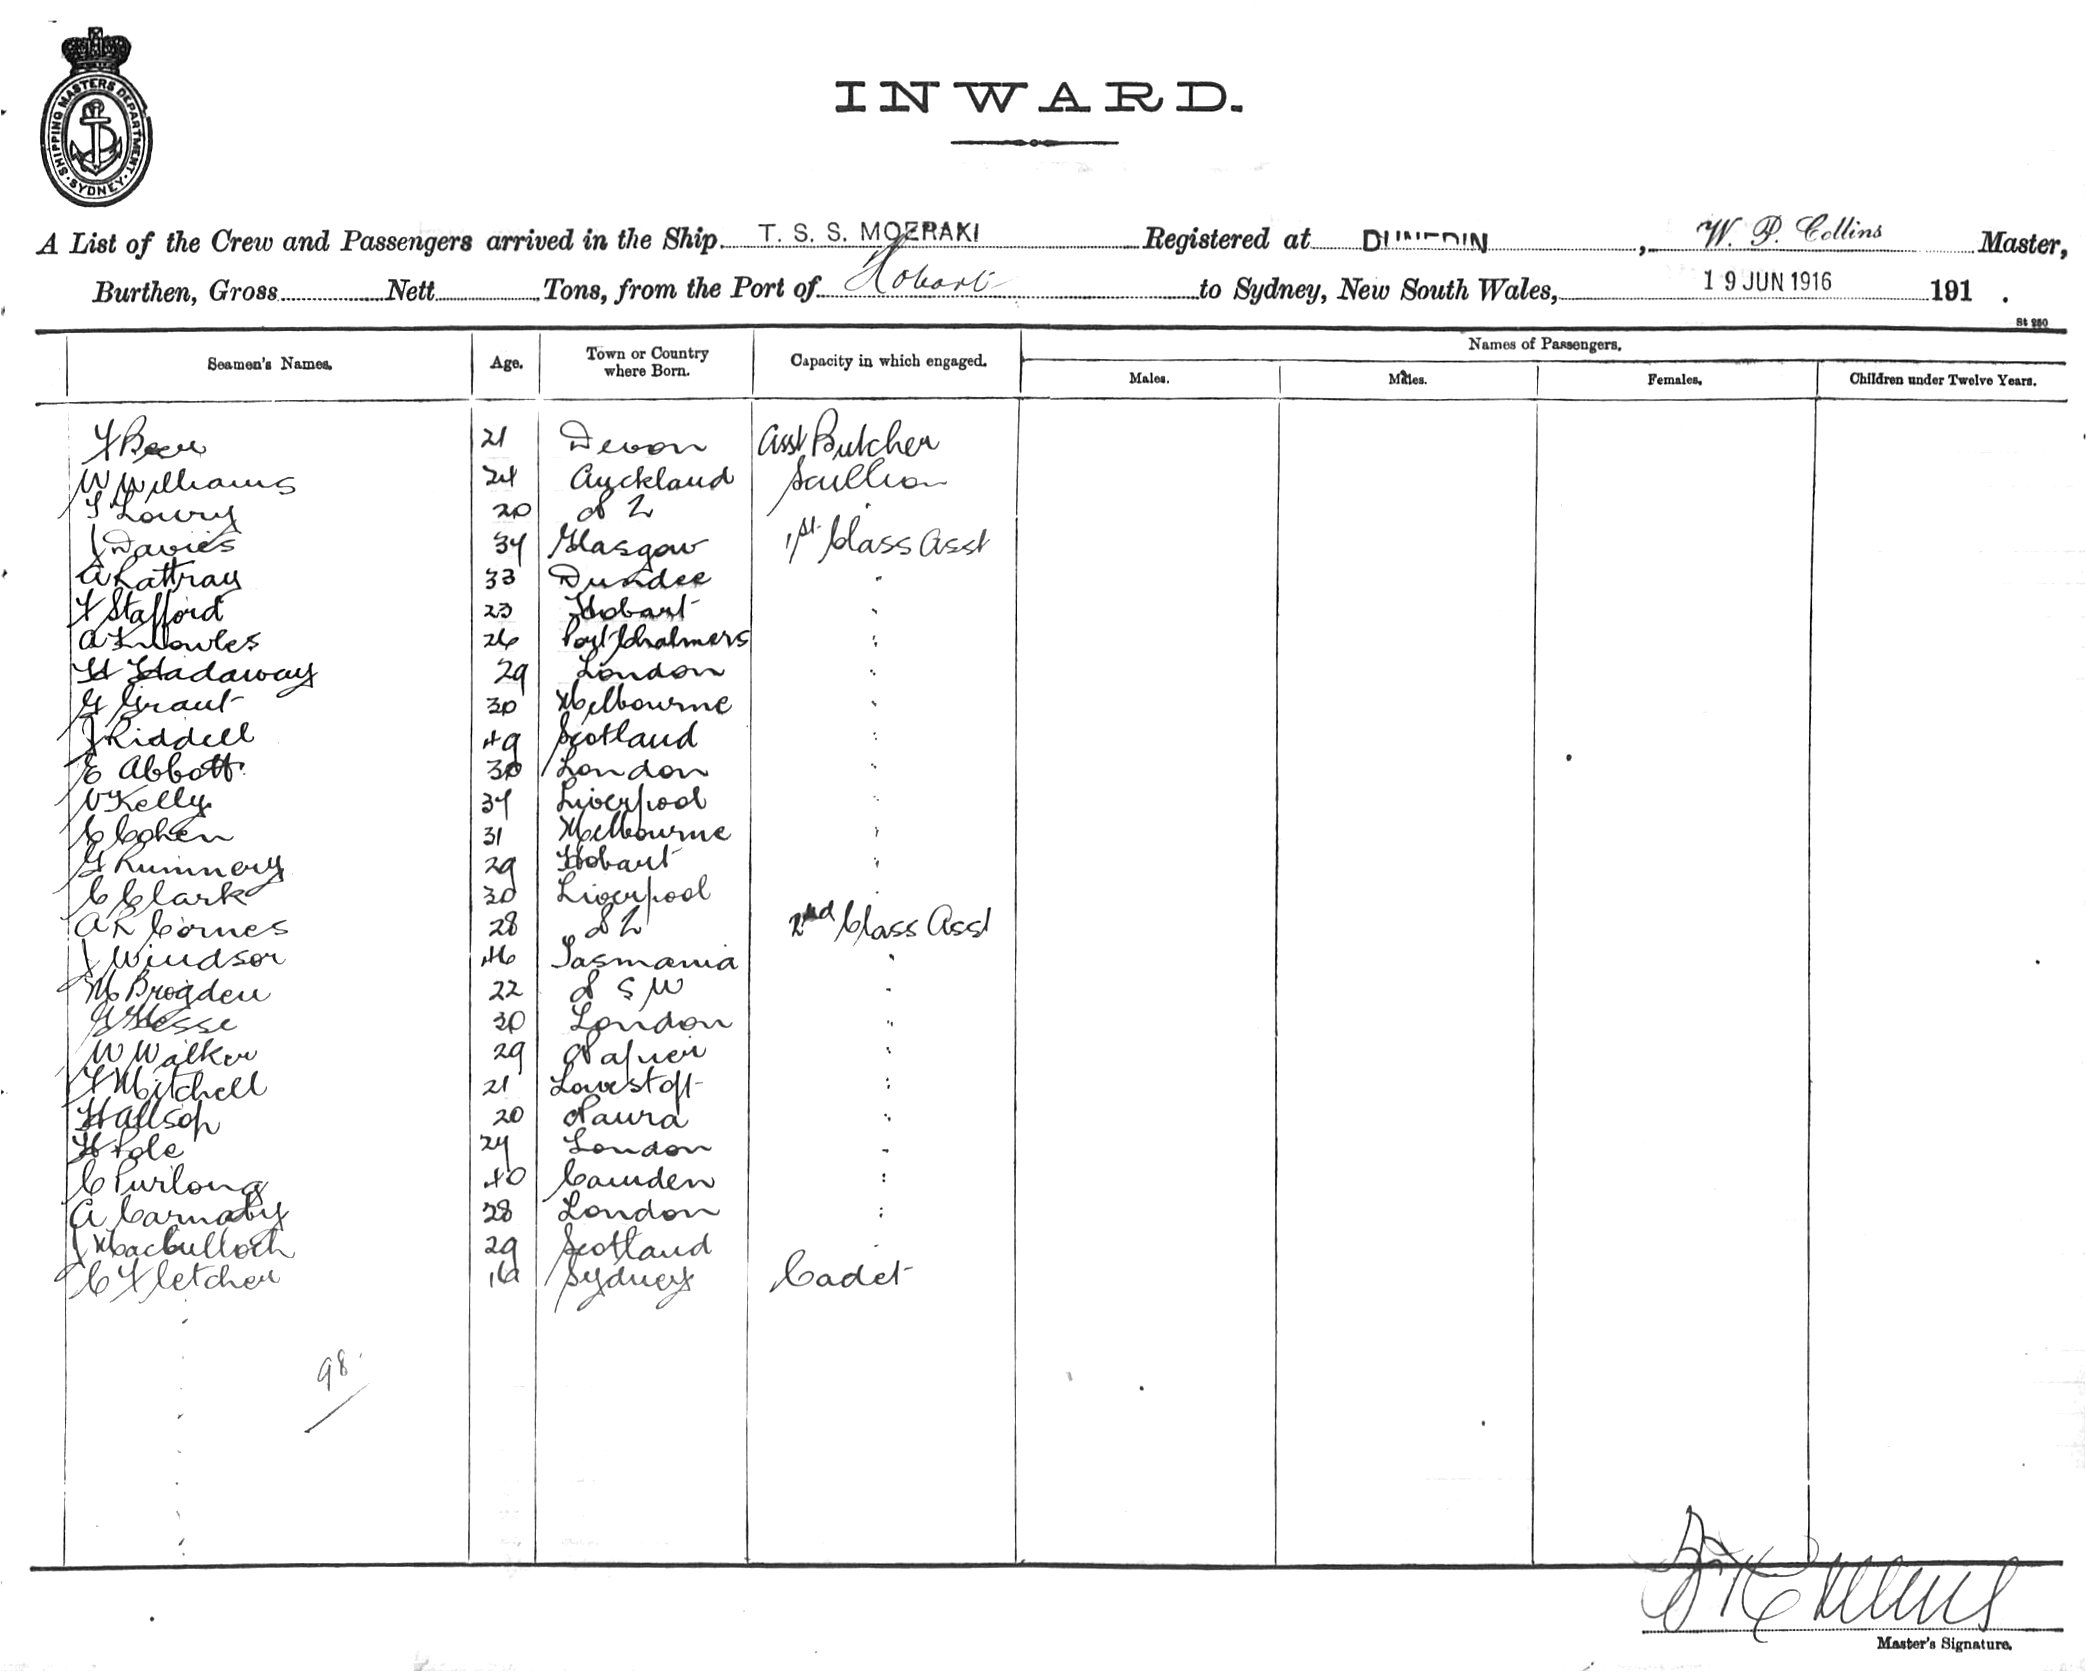 SHIPPING MASTERS DEPARTMENT. SYDNEY.
INWARD.
A List of the Crew and Passengers arrived in the Ship T. S. S. MOERAKI Registered at DUNEDIN, W. P. Collins Master,
Burthen, Gross Nett Tons, from the Port of Hobart to Sydney, New South Wales, 19 JUN 1916 191 .
St 280
Seamen's Names. Age. Town or Country where Born. Capacity in which engaged. Names of Passengers.
Males. Males. Females. Children under Twelve Years.
F Beer 21 Devon Asst Butcher
W Williams 24 Auckland Scullion
T Lowry 20 N Z "
J Davies 34 Glasgow 1st Class Asst
A Rattray 33 Dundee "
F Stafford 23 Hobart "
A Knowles 26 Port Chalmers "
H Hadaway 29 London "
G Grant 30 Melbourne "
J Riddell 49 Scotland "
E Abbott 30 London "
V Kelly 34 Liverpool "
C Cohen 31 Melbourne "
G Rumney 29 Hobart "
C Clark 30 Liverpool "
A R Cornes 28 N Z 2nd Class Asst
J Windsor 46 Tasmania "
M Brogden 22 N S W "
G Hesse 30 London "
W Walker 29 Napier "
F Mitchell 21 Lowestoft "
H Allsop 20 "
H Pole 24 London "
C Purlong 40 Camden "
A Carnaby 28 London "
J MacCulloch 29 Scotland "
C Fletcher 16 Sydney Cadet
98
Master's Signature.